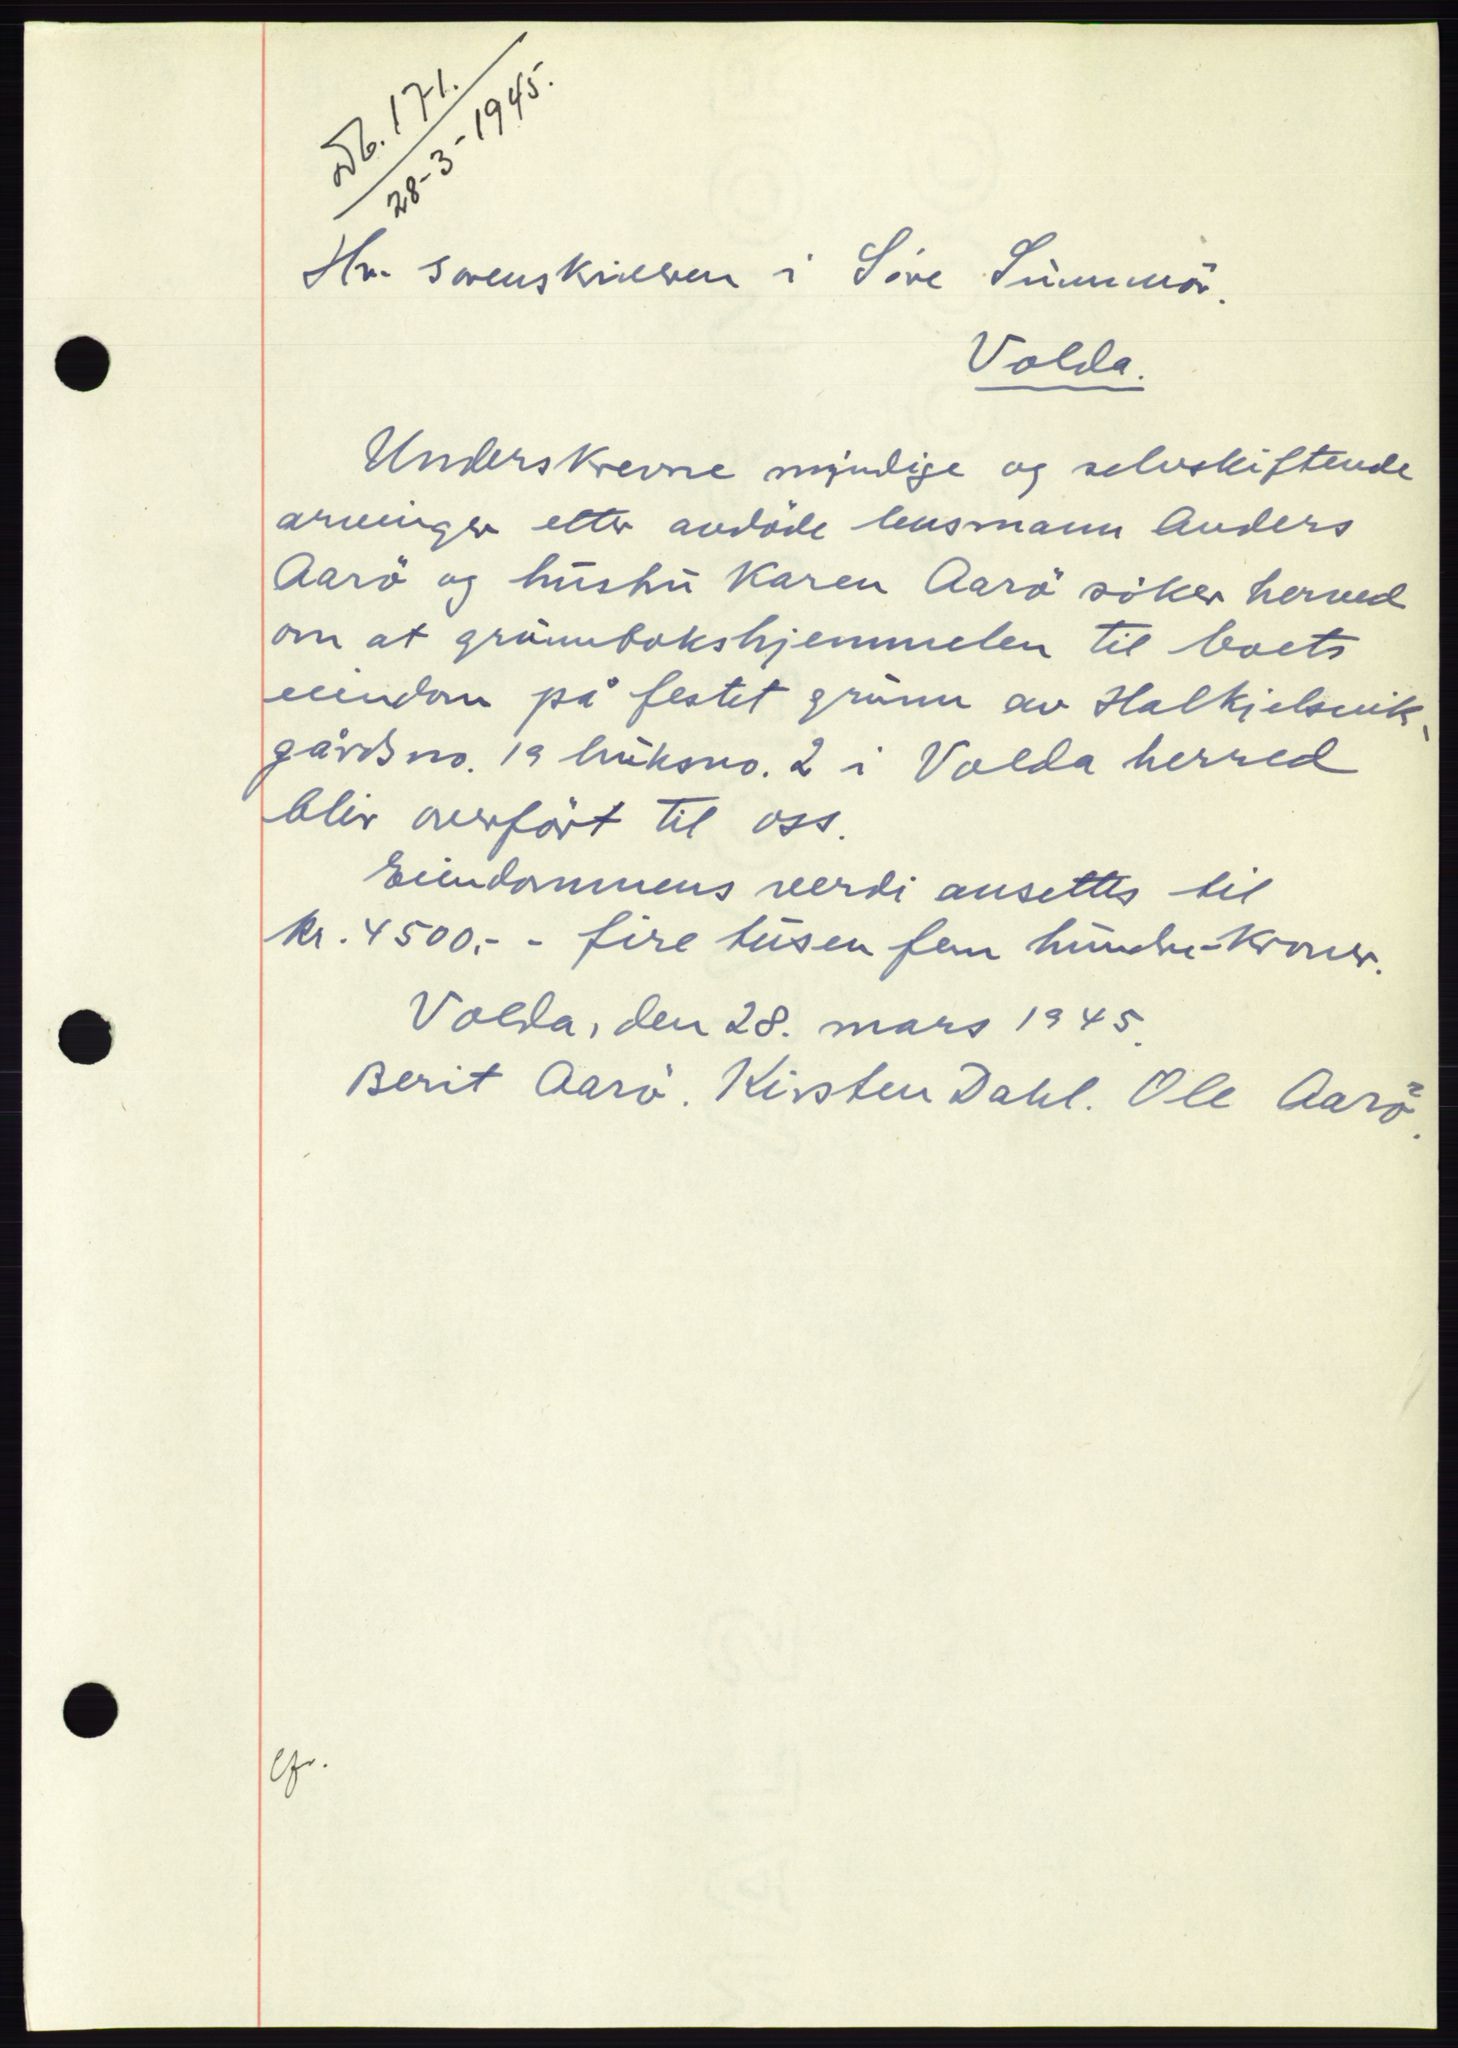 Db. 171.
28-3-1945.
Hr. sorenskriveren i Søre Sunnmør.
Volda.
Underskrevne myndige og selvskiftende
arvinger etter avdöde lensmann Anders
Aarö og hustru Karen Aarö söker herved
om at grunnbokshjemmelen til boets
eiendom på festet grunn av Halkjelsvik,
gårdsno. 19 bruksno. 2 i Volda herred
blir overfört til oss.
Eiendommens verdi ansettes til
kr. 4500,- - fire tusen fem hundre - kroner.
Volda, den 28. mars 1945.
Berit Aarö. Kirsten Dahl. Ole Aarö.